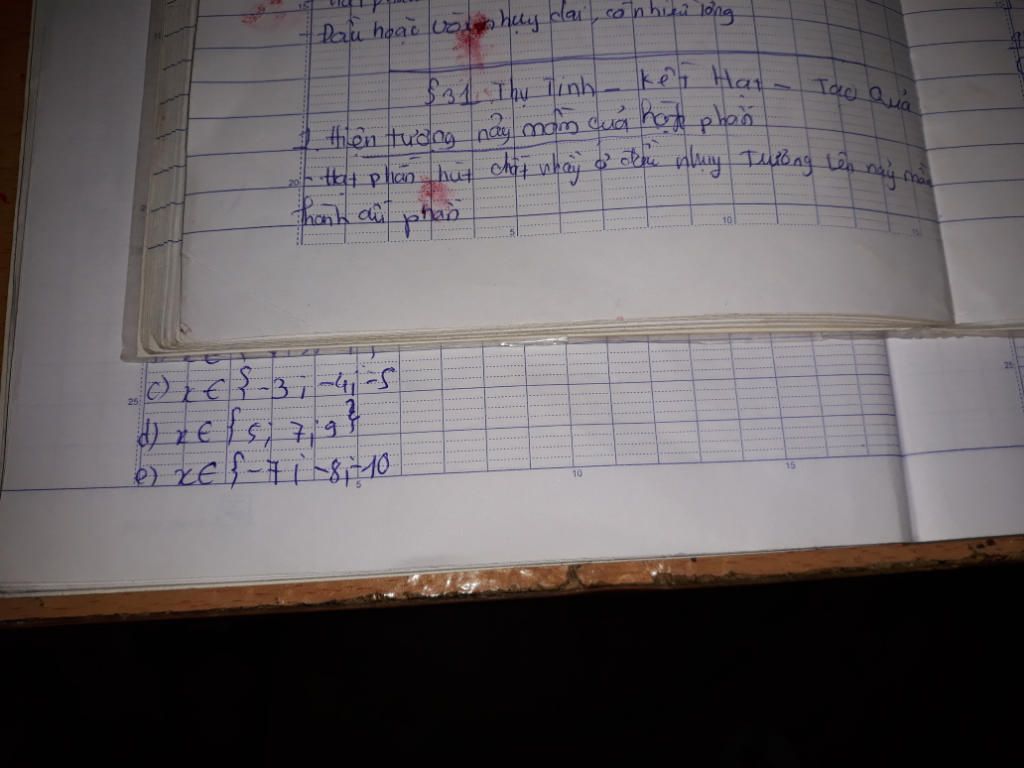 - Đầu hoặc vòi nhụy dài, có nhiều lông
§31. Thụ Tinh - Kết Hạt - Tạo Quả
1. Hiện tượng nảy mầm của hạt phấn
- Hạt phấn hút chất nhầy ở đầu nhụy Trương lên nảy mầm
thành ống phấn
c) x ∈ {-3; -4; -5
d) x ∈ {5; 7; 9}
e) x ∈ {-7; -8; -10
20
5
10
15
25
5
10
15
25